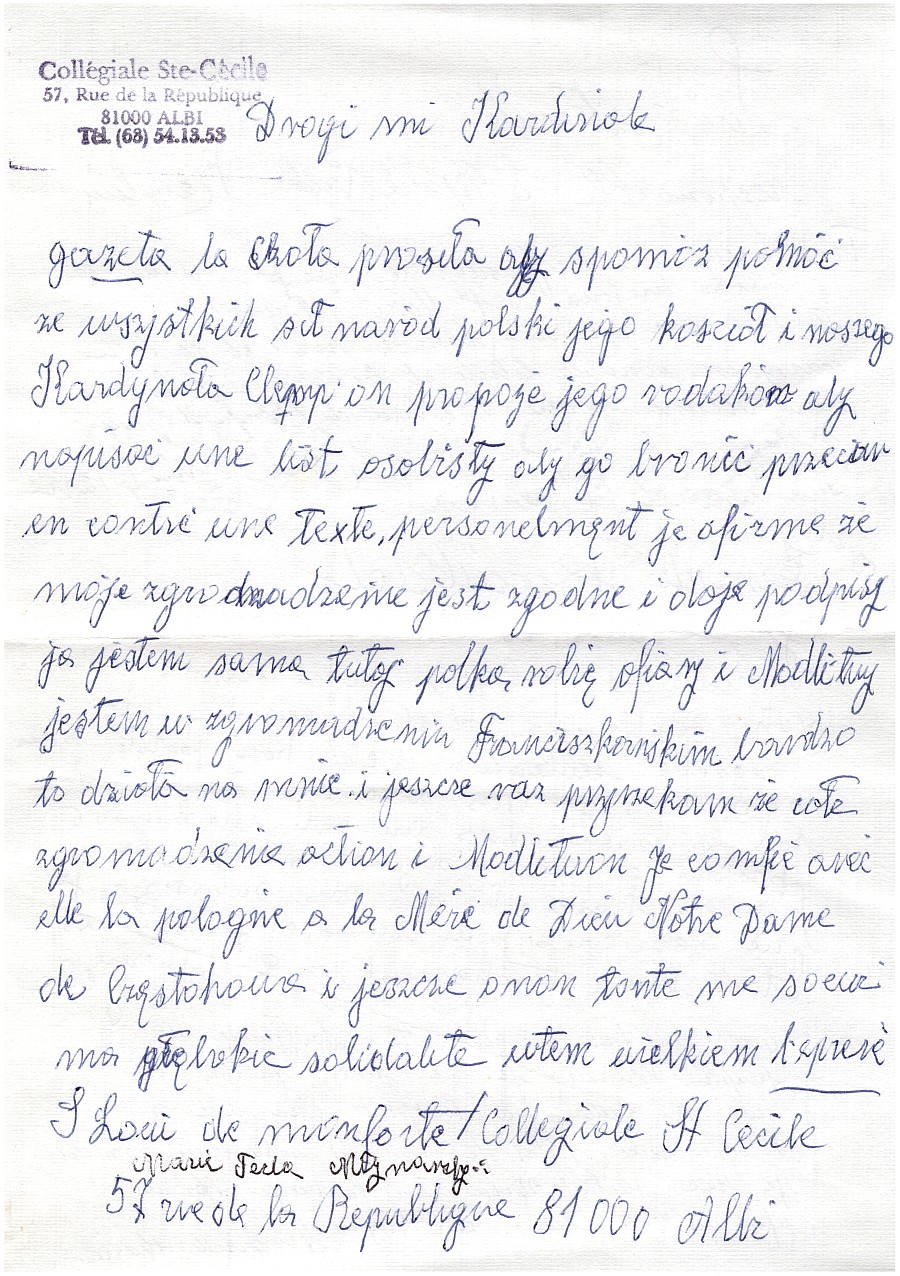 Collégiale Ste-Cécile
57, Rue de la République
81000 ALBI
Tél. (63) 54.13.53
Drogi mi Kardiniale
gazeta la proseła aby spomóz pomóć
ze wszystkich sił naród polski jego koszioł i naszego
Kardynała Clemp on propoje jego rodaków aby
napisać une list osobisty aby go bronić przeciw
en contre une texte, personelmęnt je afirme że
moje zgromadzenie jest zgodne i daje podpisy
ja jestem sama tutaj polka, robię ofiary i Modlitwy
jestem w zgromadzeniu Franciszkańskim bardzo
to działa na mnie. i jeszcze raz przyrzekam że całe
zgromadzenie action i Modlitwa Je comfie avec
elle la pologne a la Mère de Dieu Notre Dame
de Częstohowa i jeszcze toute me soeur
ma głębokie solidalite wtem wielkiem
S Loui de monforte / Collegiale St Cecile
Marie Tecla
57 rue de la Republique 81000 Albi